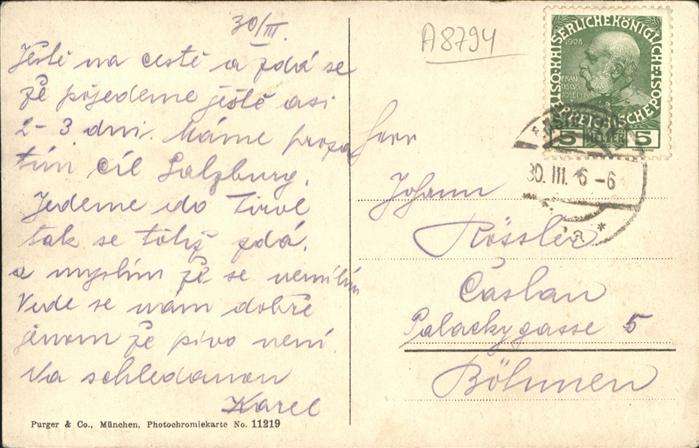 30/III.
A8794
Ještě na cestě a zdá se
že pojedeme ještě asi
2-3 dni. Máme proza
tím cíl Salzburg.
Jedeme do Tirol
tak se totiž zdá.
a myslím že se nemílím
Vede se nám dobře
jenom že pivo není
Na schledanou
Karel
Purger & Co., München, Photochromiekarte No. 11219
KAISERLICHE KÖNIGLICHE
ÖSTERREICHISCHE
5 5
30. III. 16 - 6
Herr
Johann
Rössler
Časlau
Palackygasse 5
Böhmen